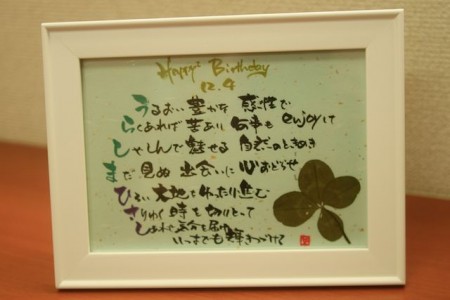 Happy Birthday
12.4
うるおい豊かな 感性で
らくあれば苦あり 何事も enjoyして
しゃしんで魅せる 自然のときめき
まだ見ぬ 出会いに 心おどらせ
ひろい 大地を ゆったり進む
さりゆく 時を切りとって
しあわせ気分を届け
いつまでも 輝きつづける